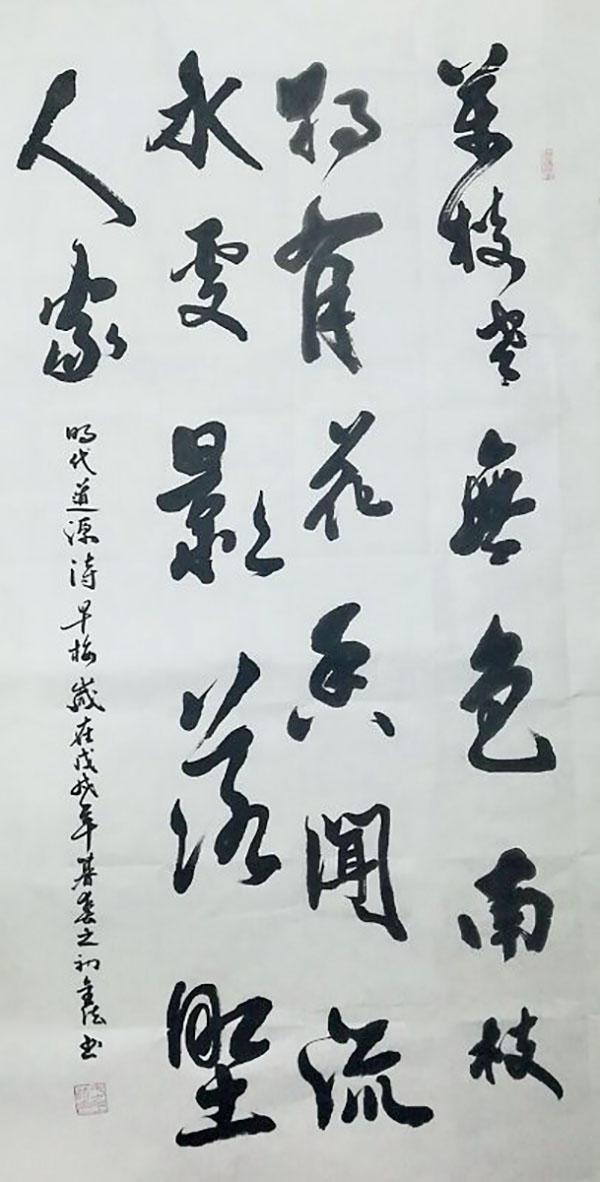 萬枝寒無色南枝
獨有花香聞流
水處影落野
人家
明代道源詩早梅歲在戊戌年暮春之初書